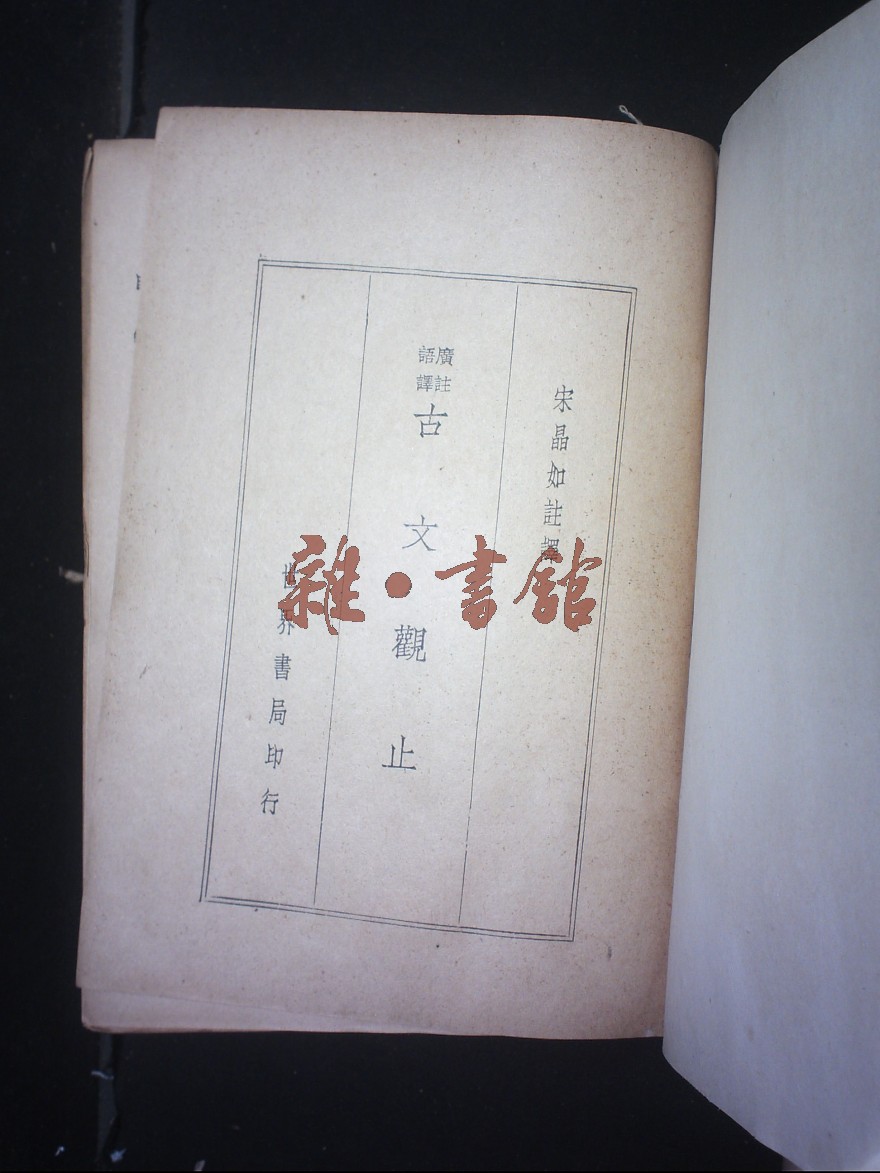 宋晶如註譯
廣註
語譯
古文觀止
世界書局印行
雜·書館